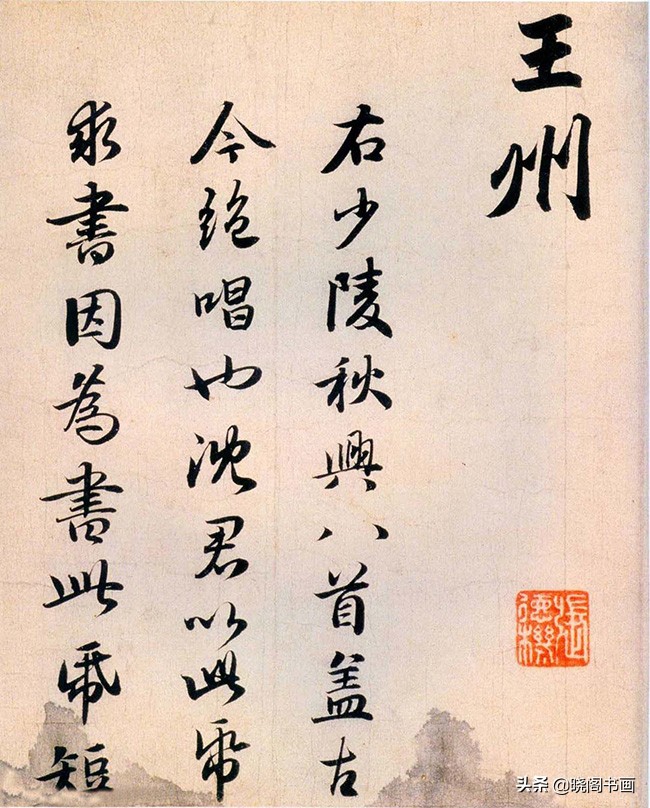 王州
右少陵秋興八首盖古
今絶唱也沈君以此帋
求書因為書此帋短
張德機
头条 @晓阁书画